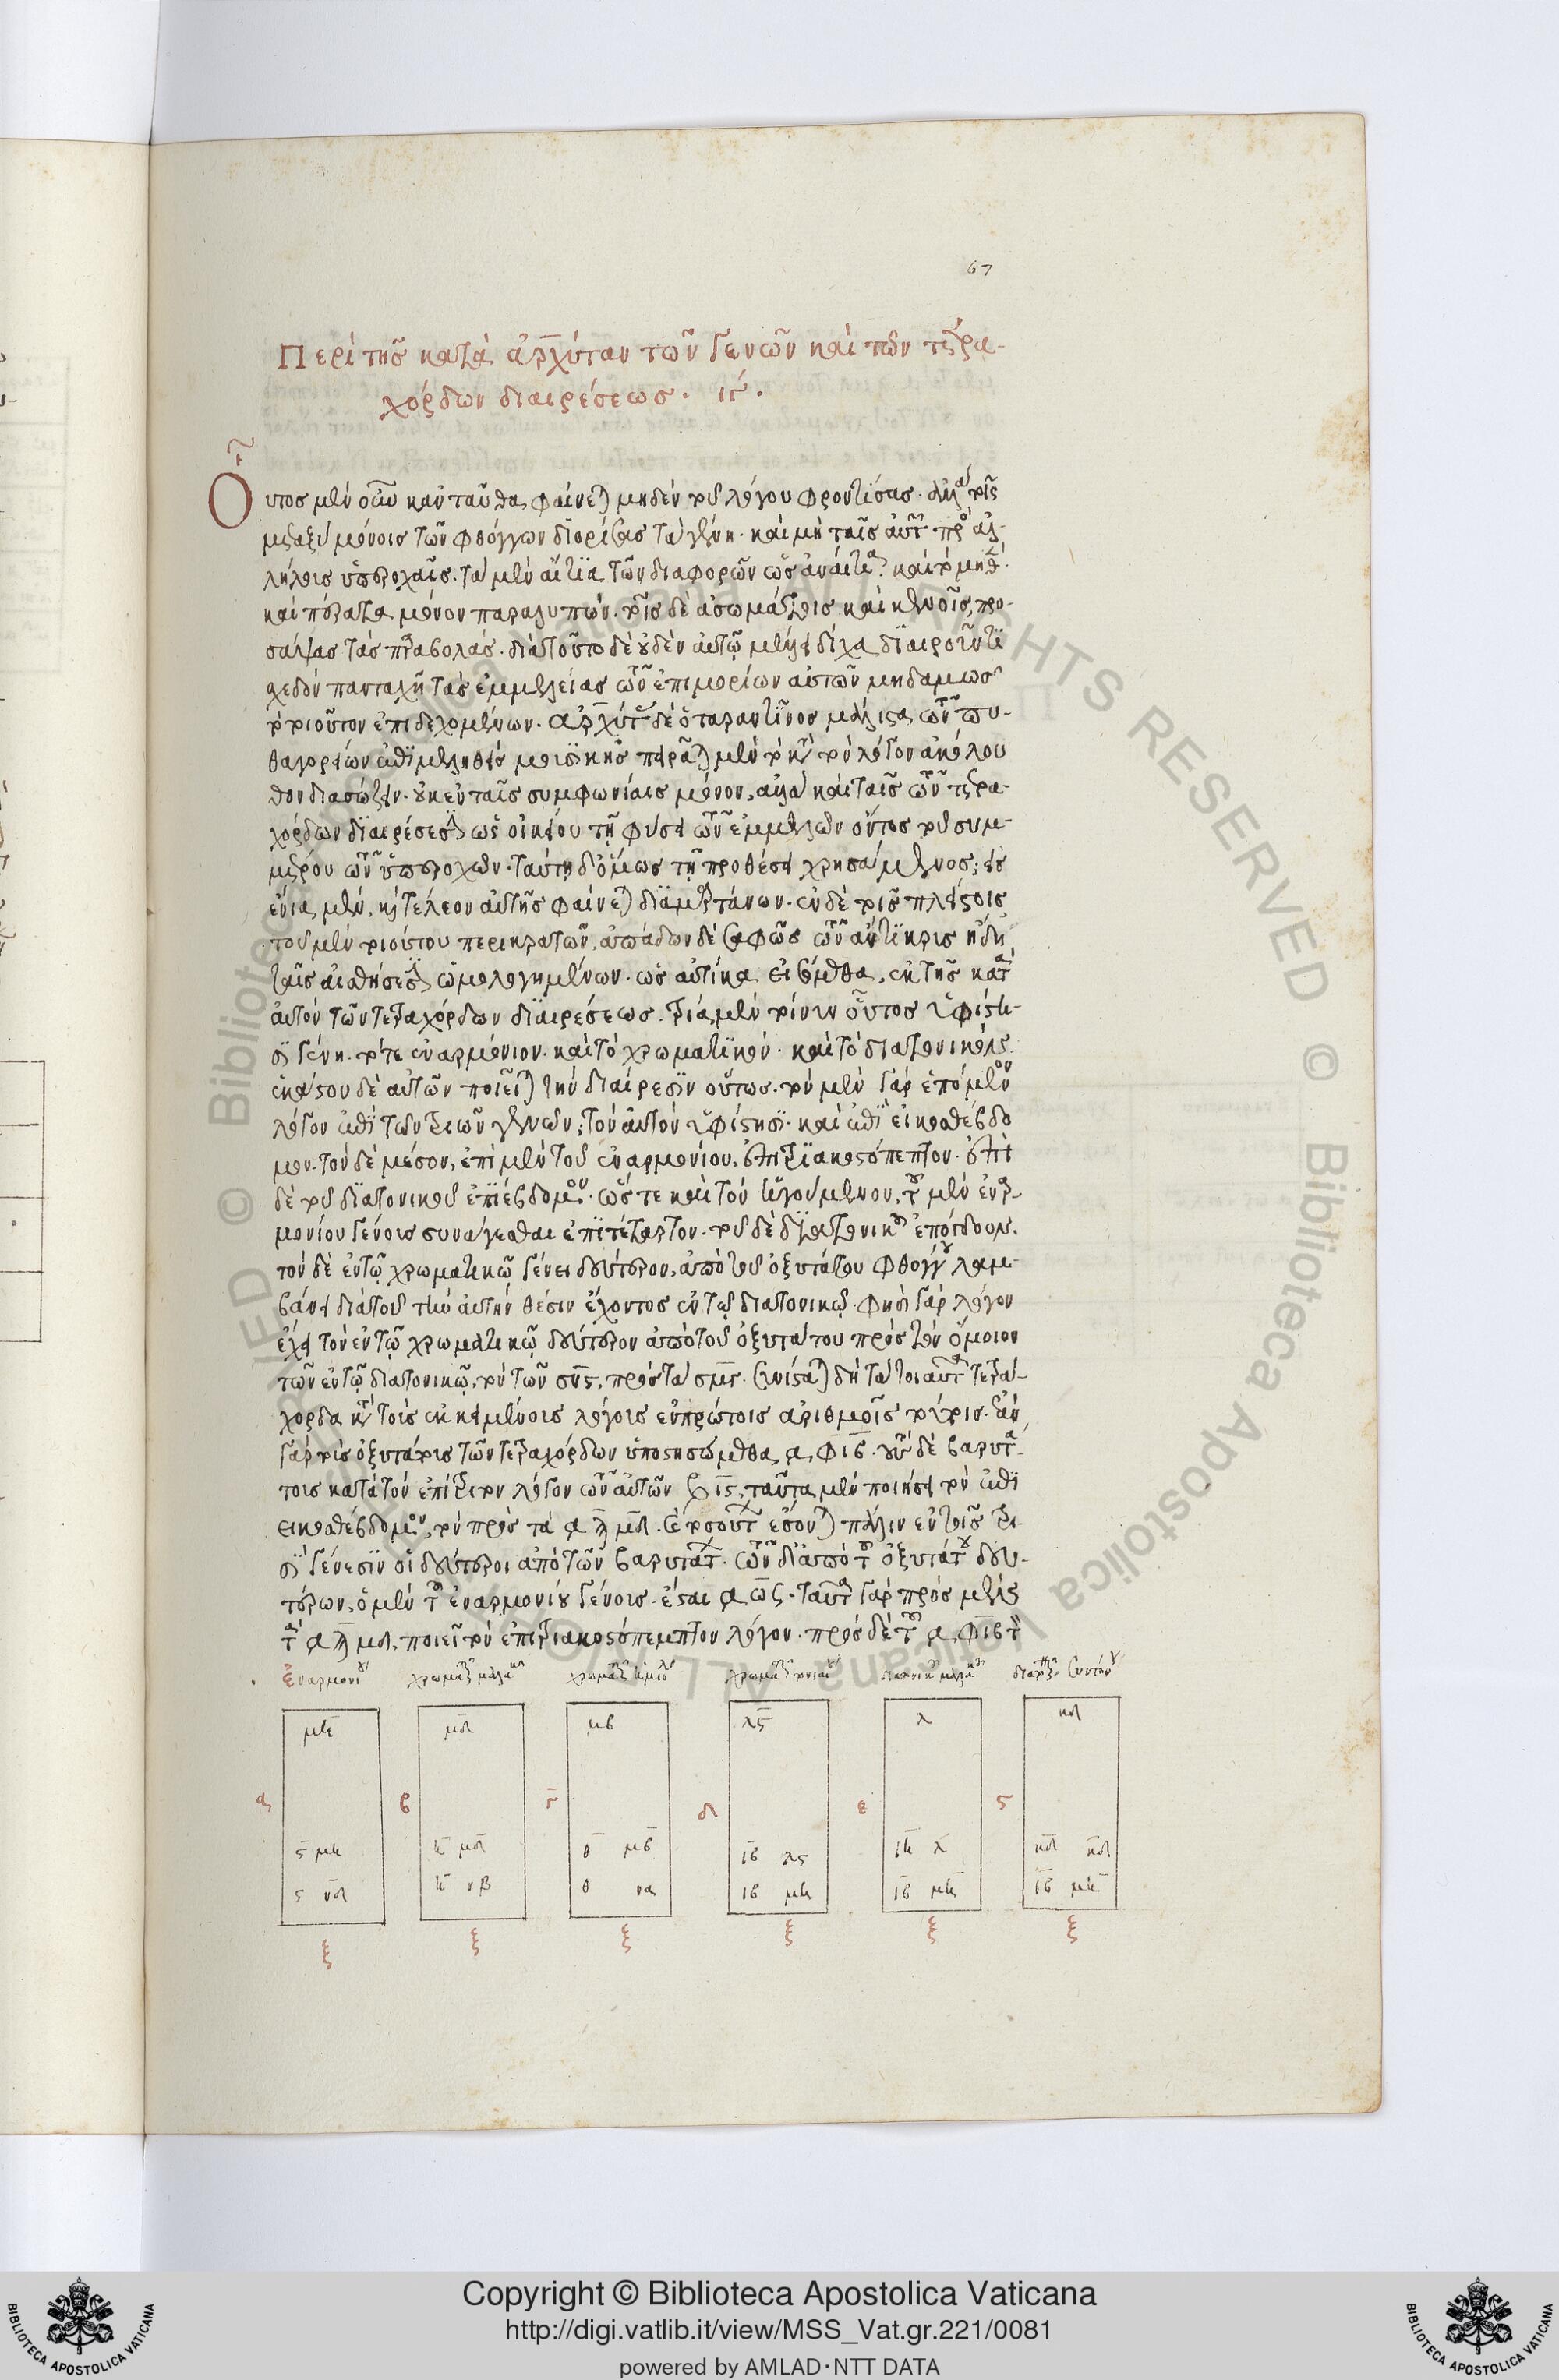 67
Περὶ τῆς κατὰ ἀρχύταν τῶν γενῶν καὶ τῶν τετρα-
χόρδων διαιρέσεως. ιγ.
Οὗτος μὲν οὖν κἀνταῦθα φαίνεται μηδὲν τοῦ λόγου φροντίσας. ἀλλὰ τοῖς
μεταξὺ μόνοις τῶν φθόγγων διορίσας τὰ γένη. καὶ μὴ ταῖς αὐτῶν πρὸς ἀλ-
λήλους ὑπεροχαῖς. τὰ μὲν αἴτια τῶν διαφορῶν ὡς ἀναίτια καὶ τὸ μηθὲν
καὶ πέρατα μόνον παραλιπών. τοῖς δὲ ἀσωμάτοις καὶ κενοῖς, προ-
σάψας τὰς παραβολάς. διὰ τοῦτο δὲ οὐδὲν αὐτῷ μέλει δίχα διαιροῦντι
σχεδὸν πανταχῆ τὰς ἐμμελείας τῶν ἐπιμορίων αὐτῶν μηδαμῶς
τὸ τοιοῦτον ἐπιδεχομένων. ἀρχύτας δὲ ὁ ταραντῖνος μάλιστα τῶν πυ-
θαγορείων ἐπιμεληθεὶς μουσικῆς πειρᾶται μὲν τὸ κατὰ τὸν λόγον ἀκόλου
θον διασώζειν. οὐκ ἐν ταῖς συμφωνίαις μόνον, ἀλλὰ καὶ ταῖς τῶν τετρα-
χόρδων διαιρέσεσιν ὡς οἰκείου τῇ φύσει τῶν ἐμμελῶν ὄντος τοῦ συμ-
μέτρου τῶν ὑπεροχῶν. ταύτῃ δ' ὅμως τῇ προθέσει χρησάμενος; εἰς
ἔνια μὲν, καὶ τέλεον αὐτῆς φαίνεται διαμαρτάνων. ἐν δὲ τοῖς πλείστοις
τοῦ μὲν τοιούτου περικρατῶν, ἀπᾴδων δὲ σαφῶς τῶν ἄντικρυς ἤδη
ταῖς αἰσθήσεσιν ὡμολογημένων. ὡς αὐτίκα εἰσόμεθα, ἐκ τῆς κατ'
αὐτὸν τῶν τετραχόρδων διαιρέσεως. τρία μὲν τοίνυν οὗτος ὑφίστη-
σι γένη. τό τε ἐναρμόνιον. καὶ τὸ χρωματικόν. καὶ τὸ διατονικόν
ἑκάστου δὲ αὐτῶν ποιεῖται τὴν διαίρεσιν οὕτως. τὸν μὲν γὰρ ἑπόμενον
λόγον ἐπὶ τῶν τριῶν γενῶν; τὸν αὐτὸν ὑφίστησι. καὶ ἐπὶ εἰκοσθέβδο
μον. τὸν δὲ μέσον, ἐπὶ μὲν τοῦ ἐναρμονίου, ἐπιτριακοστόπεμπτον. ἐπὶ
δὲ τοῦ διατονικοῦ ἐπιέβδομον. ὥστε καὶ τὸν ἡγούμενον, τοῦ μὲν ἐναρ-
μονίου γένους συνάγεσθαι ἐπιτέταρτον. τοῦ δὲ διατονικοῦ ἐπόγδοον.
τὸν δὲ ἐν τῷ χρωματικῷ γένει δεύτερον, ἀπὸ τοῦ ὀξυτάτου φθόγγου λαμ-
βάνει διὰ τοῦ τὴν αὐτὴν θέσιν ἔχοντος ἐν τῷ διατονικῷ. φησὶ γὰρ λόγον
ἔχει τὸν ἐν τῷ χρωματικῷ δεύτερον ἀπὸ τοῦ ὀξυτάτου πρὸς τὸν ὅμοιον
τῶν ἐν τῷ διατονικῷ, τὸν τῶν σνς, πρὸς τὰ σμγ. συνίσταται δὴ τὰ τοιαῦτα τετρά-
χορδα κατὰ τοὺς ἐκκειμένους λόγους ἐν πρώτοις ἀριθμοῖς τούτοις. ἐὰν
γὰρ τοὺς ὀξυτάτους τῶν τετραχόρδων ὑποστησώμεθα, α φιβ. τοὺς δὲ βαρυτά-
τους κατὰ τὸν ἐπίτριτον λόγον τῶν αὐτῶν β ις, ταῦτα μὲν ποιήσει τὸν ἐπὶ
εικοσθέβδομον, τὸν πρὸς τὰ α λ μδ. καὶ τοσοῦτοι ἔσονται πάλιν ἐν τοῖς τρι-
σὶ γένεσιν οἱ δεύτεροι ἀπὸ τῶν βαρυτάτων. τῶν δ' ἀπὸ τοῦ ὀξυτάτου δευ-
τέρων, ὁ μὲν τοῦ ἐναρμονίου γένους. ἔσται α ως. ταῦτα γὰρ πρὸς μὲν
τὰ α λ μδ, ποιεῖ τὸν ἐπιτριακοστόπεμπτον λόγον. πρὸς δὲ τὰ α, φιβ τὸν
ἐναρμονίου χρωματικοῦ μαλακοῦ χρωματικοῦ ἡμιολίου χρωματικοῦ τονιαίου διατονικοῦ μαλακοῦ διατονικοῦ συντόνου
με μδ μβ λς λ κδ
α β γ δ ε ς
ς με η μδ θ μβ ιβ λς ιη λ κδ κδ
ς νδ η νβ θ να ιβ μη ιβ μη ιβ μη
ξ ξ ξ ξ ξ ξ
Copyright © Biblioteca Apostolica Vaticana
http://digi.vatlib.it/view/MSS_Vat.gr.221/0081
powered by AMLAD·NTT DATA